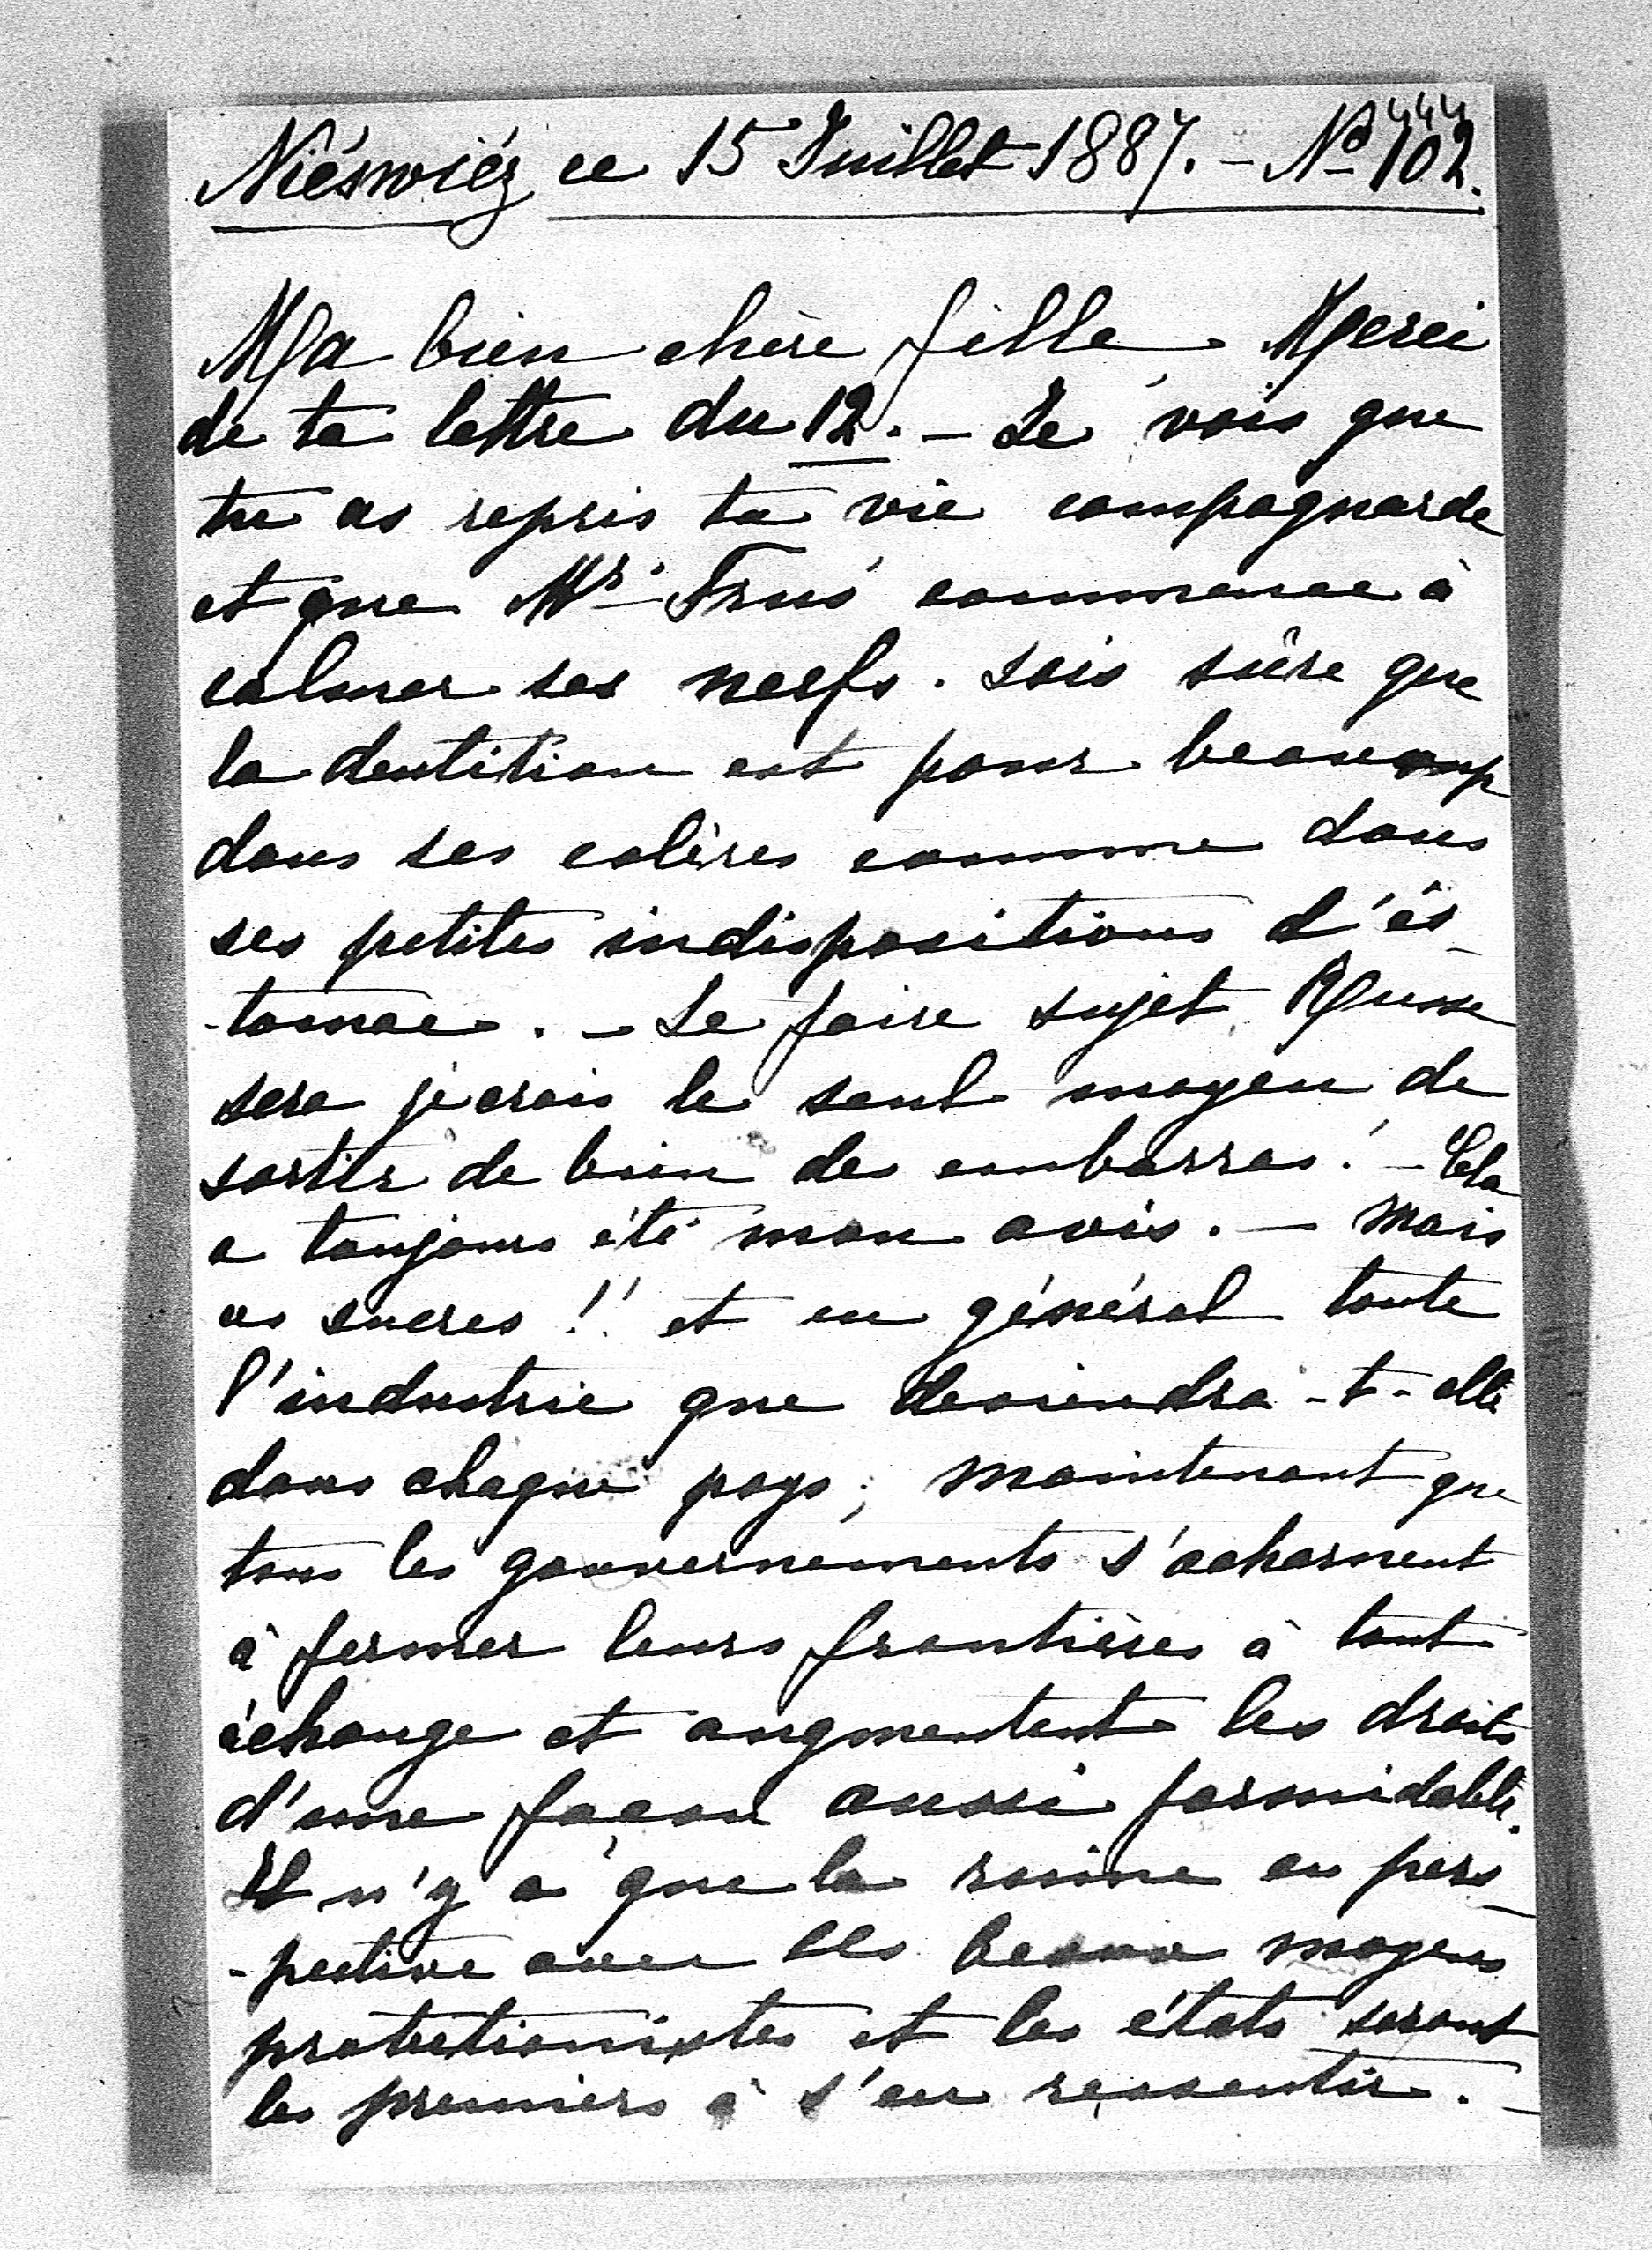 Niéswiéz ce 15 Juillet 1887. – No 102.
444
Ma bien chère fille. Merci
de ta lettre du 12. – Je vois que
tu as repris ta vie campagnarde
et que Mr. commence à
calmer ses nerfs. Sois sûre que
la dentition est pour beaucoup
dans ses colères comme dans
ses petites indispositions d'es-
-tomac. – Se faire sujet Russe
sera je crois le seul moyen de
sortir de bien des embarras! – Cela
a toujours été mon avis. – Mais
os sucres!! et en général toute
l'industrie que deviendra-t-elle
dans chaque pays; maintenant que
tous les gouvernements s'acharnent
à fermer leurs frontières à tout
échange et augmentent les droits
d'une façon aussi formidable.
Il n'y a que la ruine en pers-
-pective avec ces beaux moyens
protectionistes et les états seront
les premiers à s'en ressentir. –